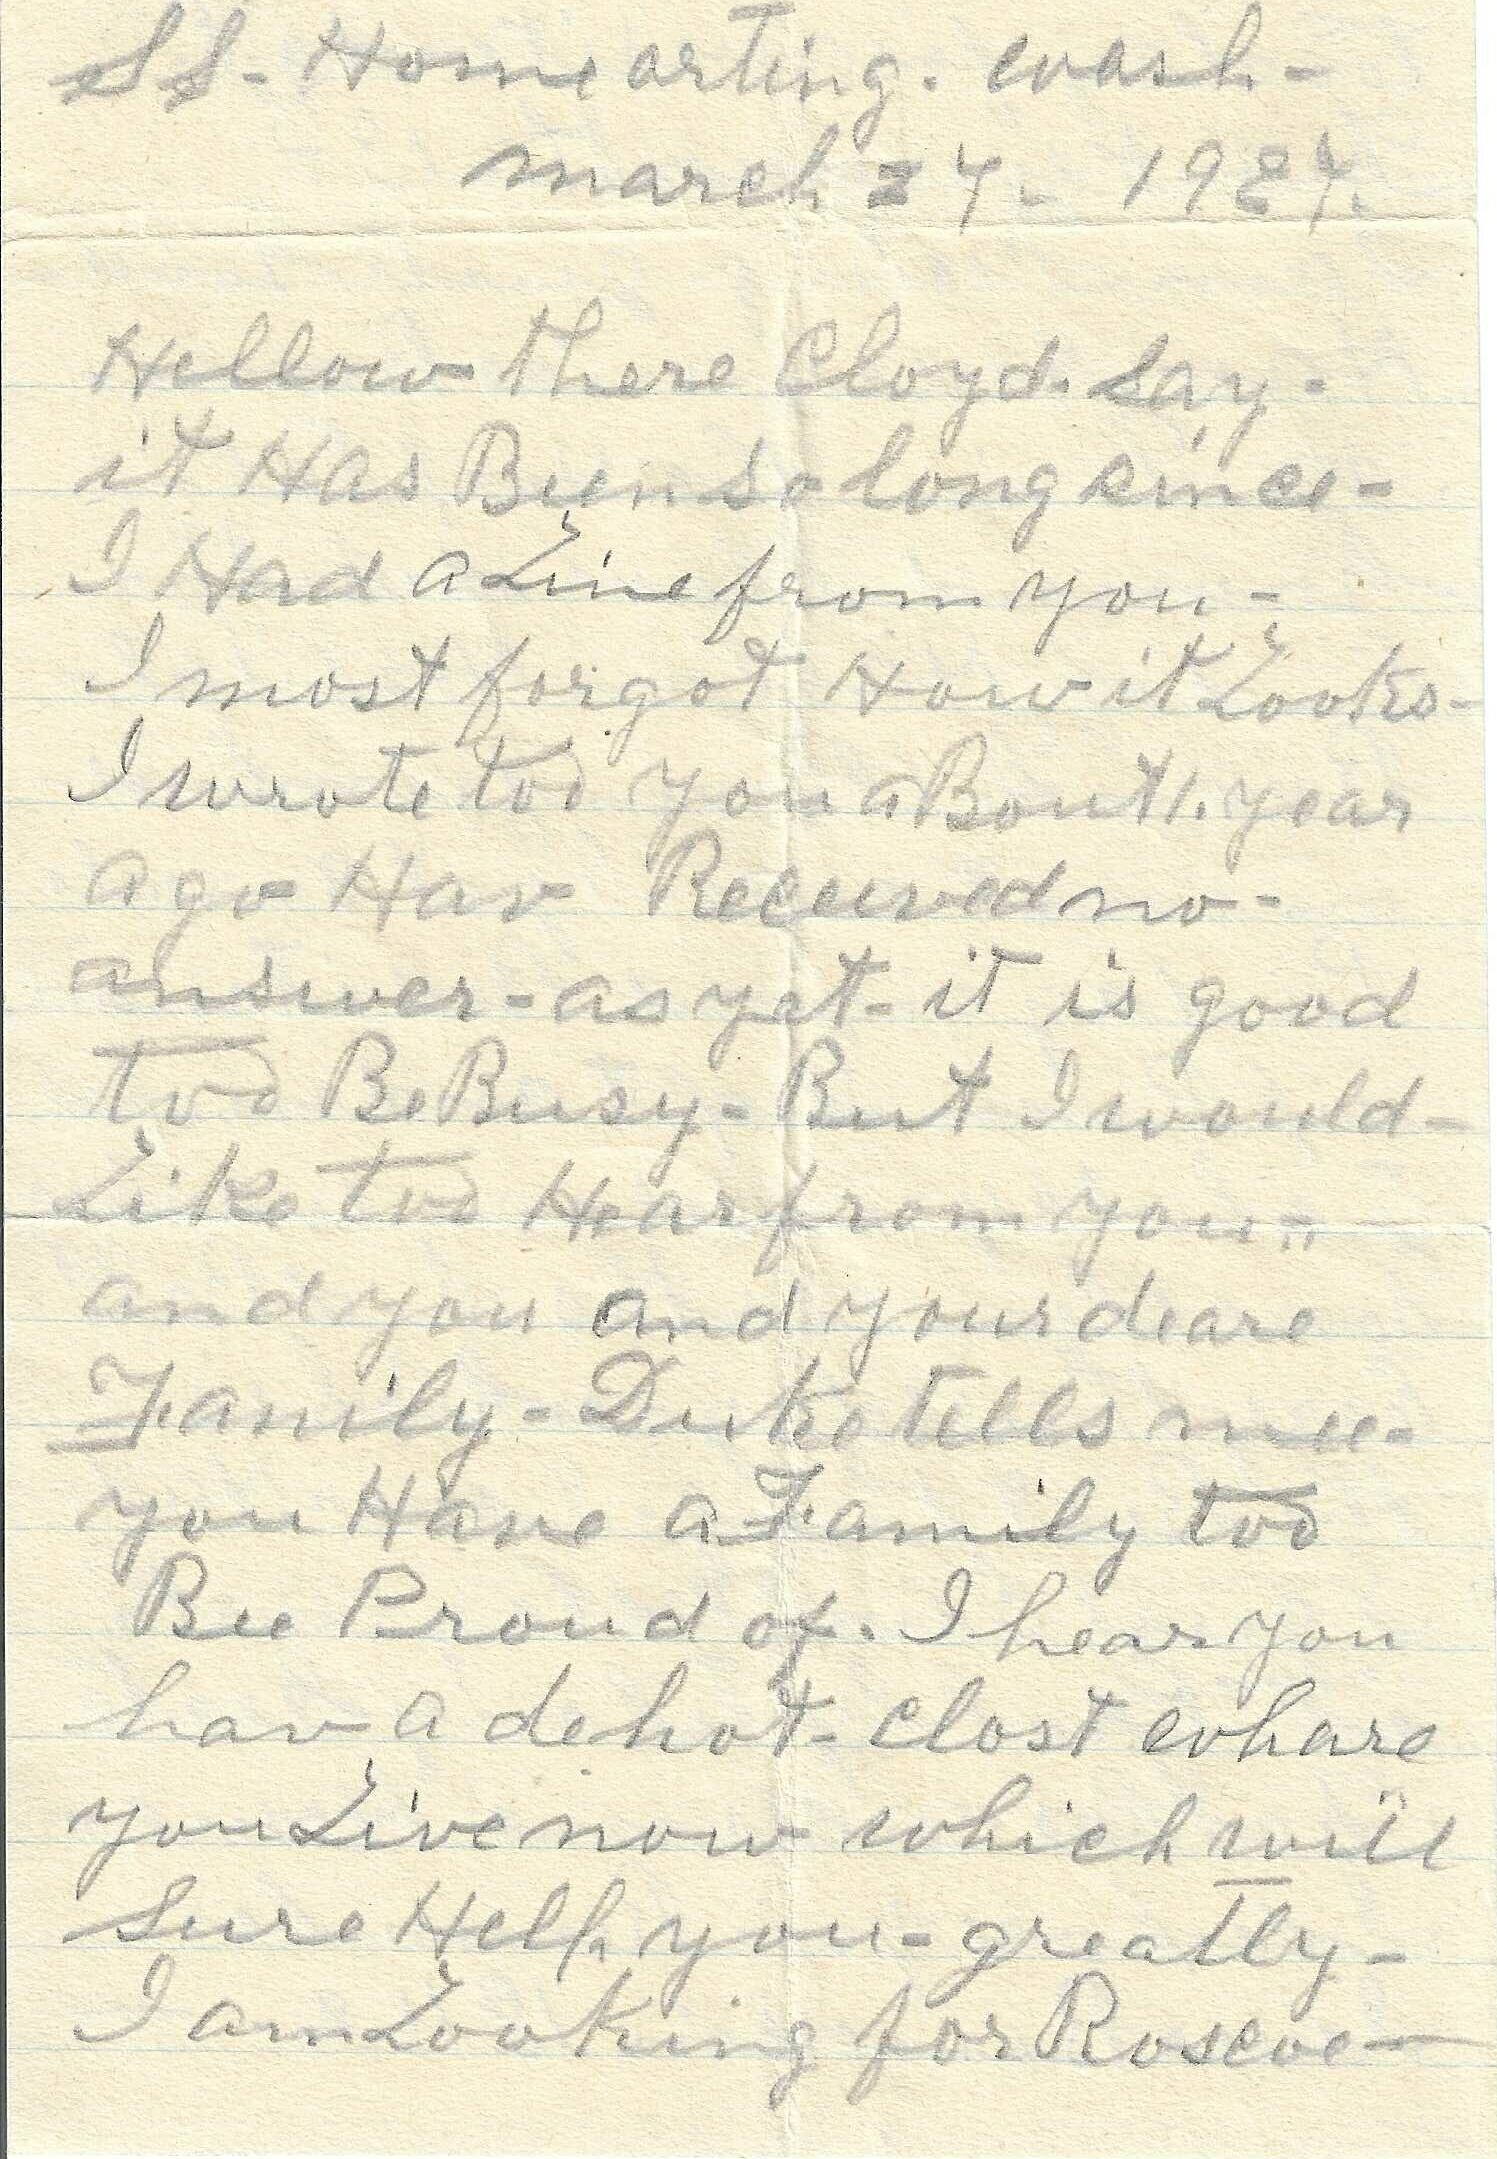 SS - Home orting. Wash -
march 27 - 1927.
Hellow there Cloyd. Say -
it Has Been so long since -
I Had a Line from you -
I most forgot How it Looks -
I wrote too you aBout 1. year
ago Hav Received no -
answer - as yet - it is good
too Be Busy - But I would -
Like too Hear from you -
and you and your deare
Family - Duke tells mee -
you Have a Family too
Bee Proud of. I hear you
hav a dehot - clost whare
you Live now which will
Sure Help you - greatly -
I am Looking for Roscoe -